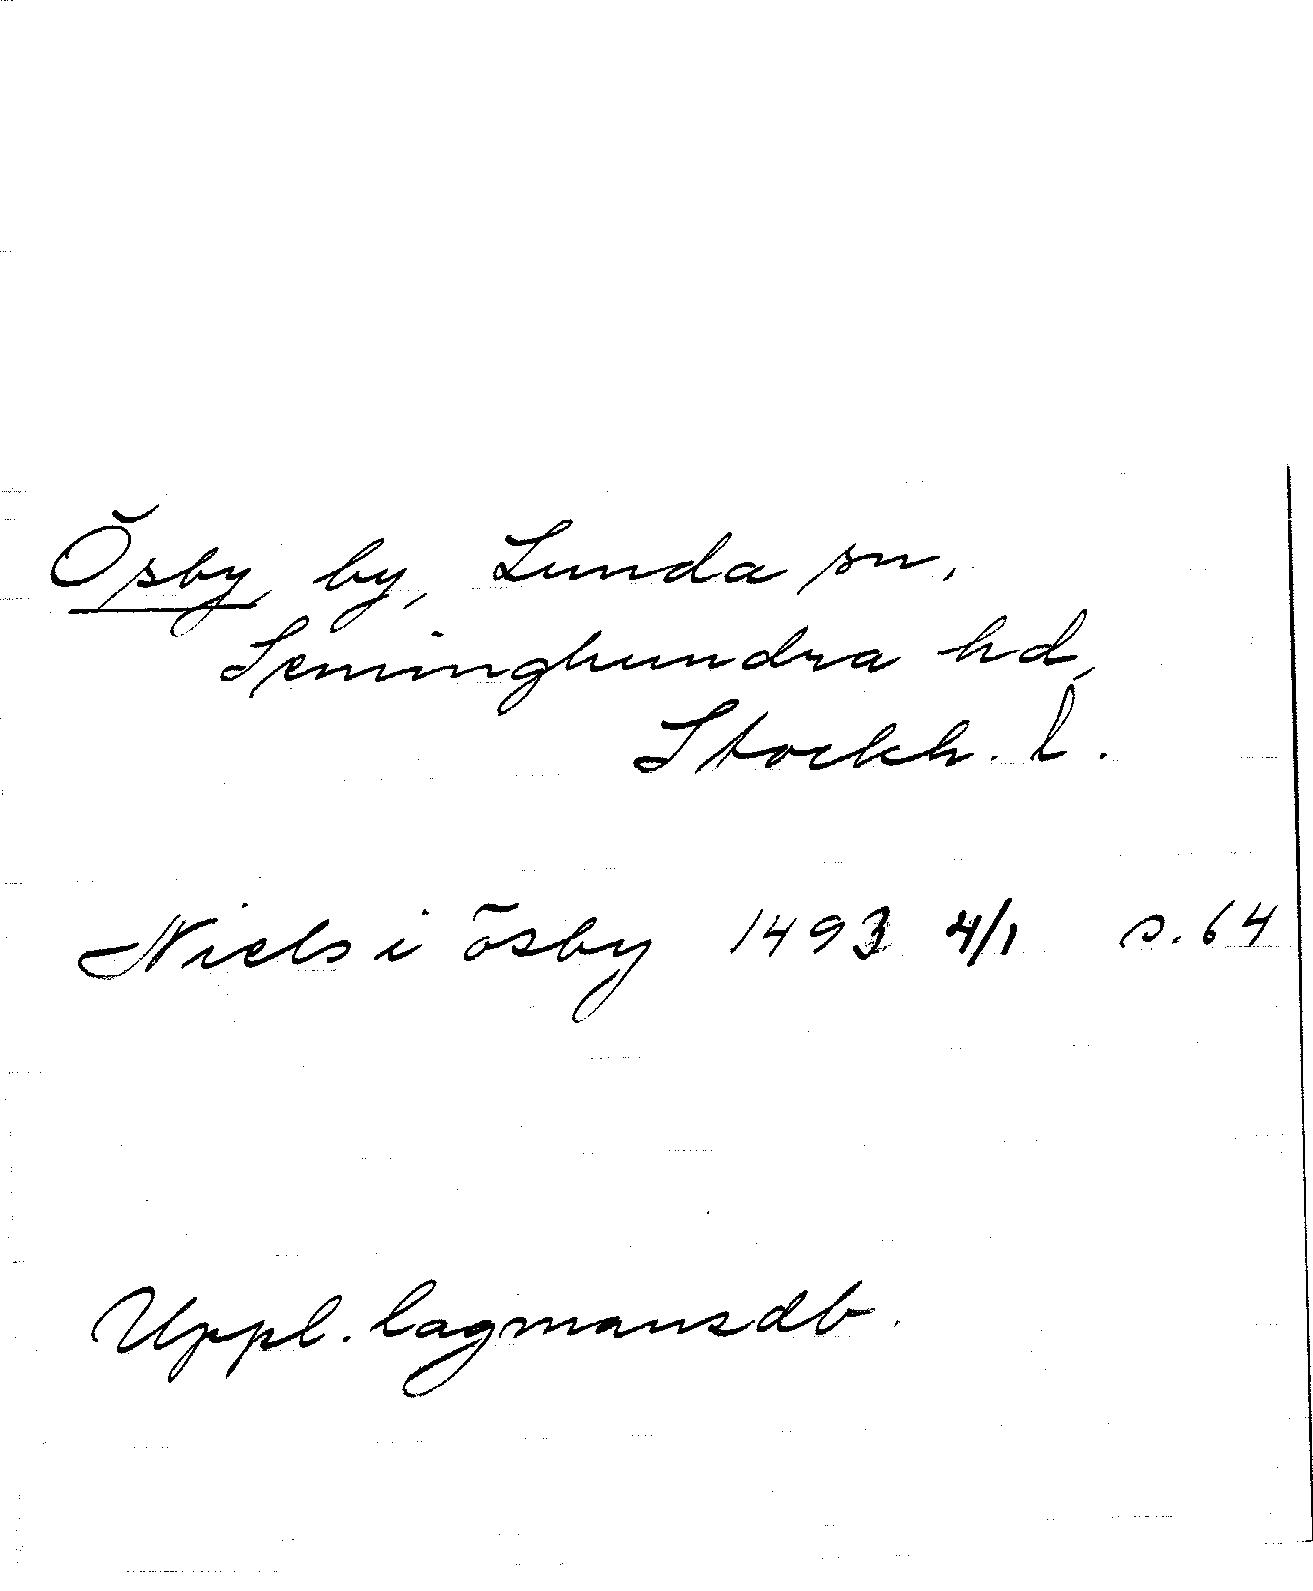 Ösby by, Lunda sn,
Seminghundra hd,
Stockh. l.
Niels i ösby 1493 4/1 s. 64
Uppl. lagmansdb.